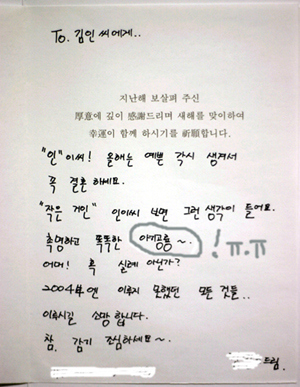 To. 김인 씨에게..
지난해 보살펴 주신
厚意에 깊이 感謝드리며 새해를 맞이하여
幸運이 함께 하시기를 祈願합니다.
"인"이씨! 올해는 예쁜 각시 생겨서
꼭 결혼 하세요.
"작은 거인" 인이씨 보면 그런 생각이 들어요.
총명하고 똑똑한 아기공룡~. ! ㅠ.ㅠ
어머! 혹 실례 아닌가?
2004年엔 이루지 못했던 모든 것들..
이루시길 소망 합니다.
참, 감기 조심하세요~.
드림.